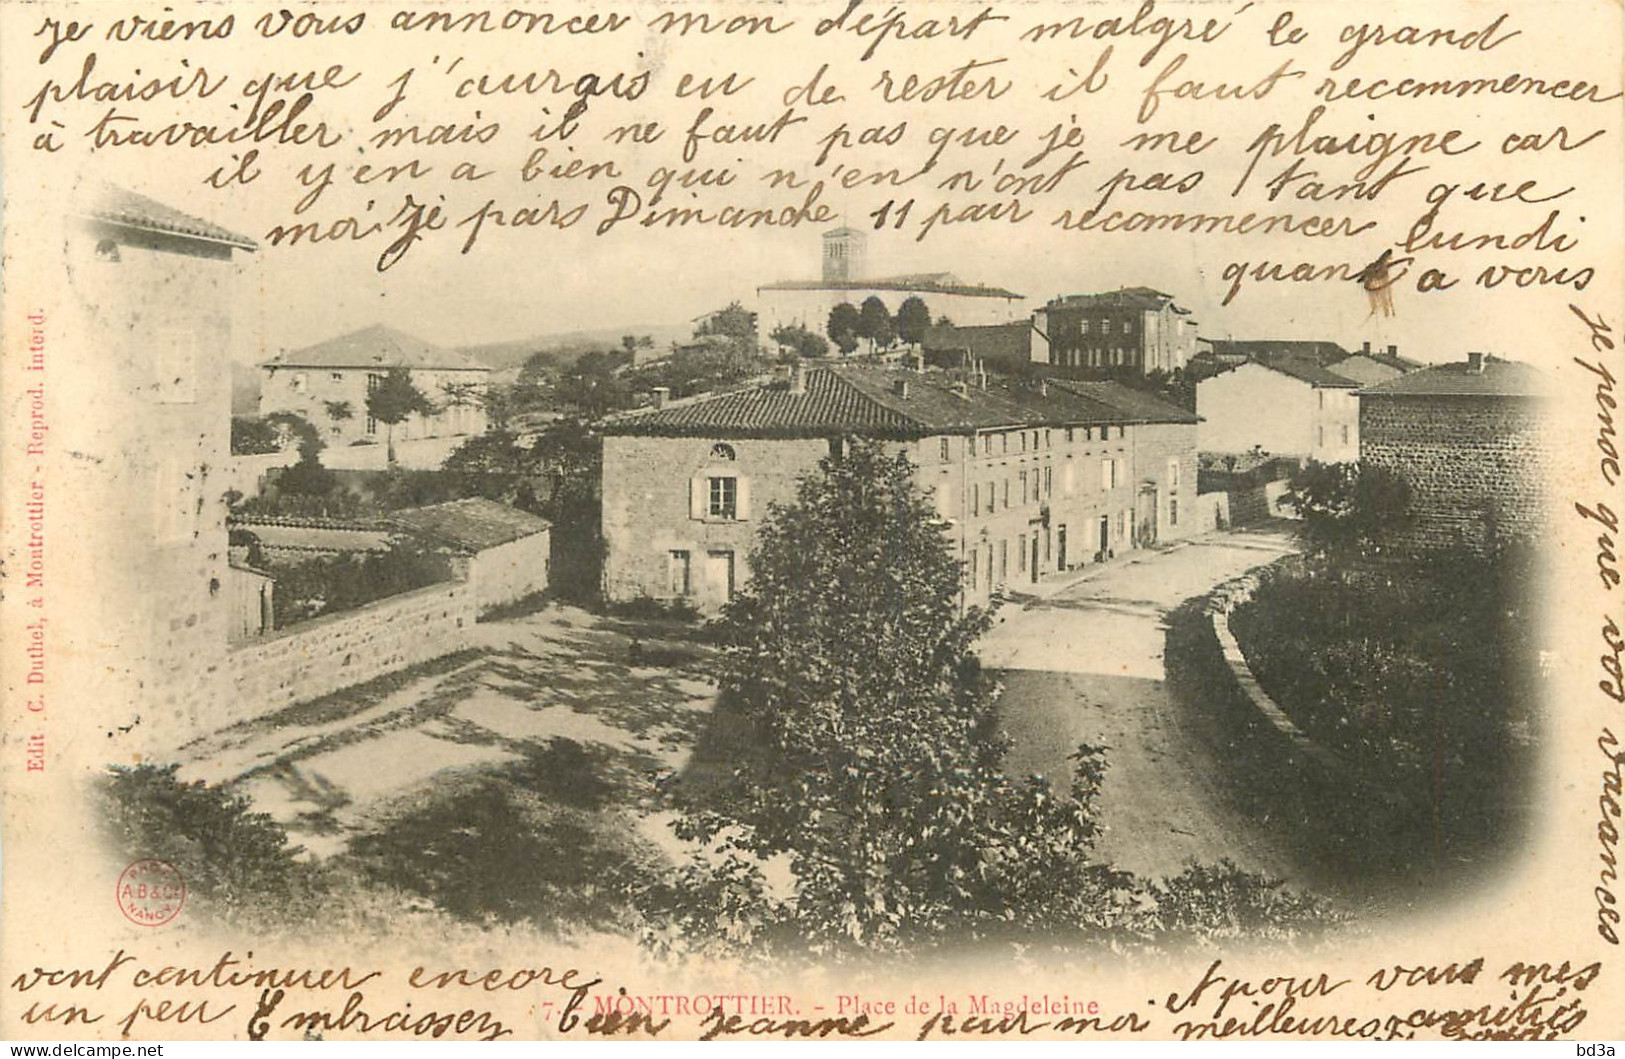 je viens vous annoncer mon départ malgré le grand
plaisir que j'aurais eu de rester il faut recommencer
à travailler mais il ne faut pas que je me plaigne car
il y en a bien qui n'en n'ont pas tant que
moi. Je pars Dimanche 11 pair recommencer lundi
quant a vous
je pense que vos vacances
vont continuer encore
un peu Embrassez bien jeanne pour moi
et pour vous mes
meilleures amitiés
7. - MONTROTTIER. - Place de la Magdeleine
Edit C. Duthel, à Montrottier - Reprod. interd.
PHOT
A.B & Cie
NANCY
bd3a